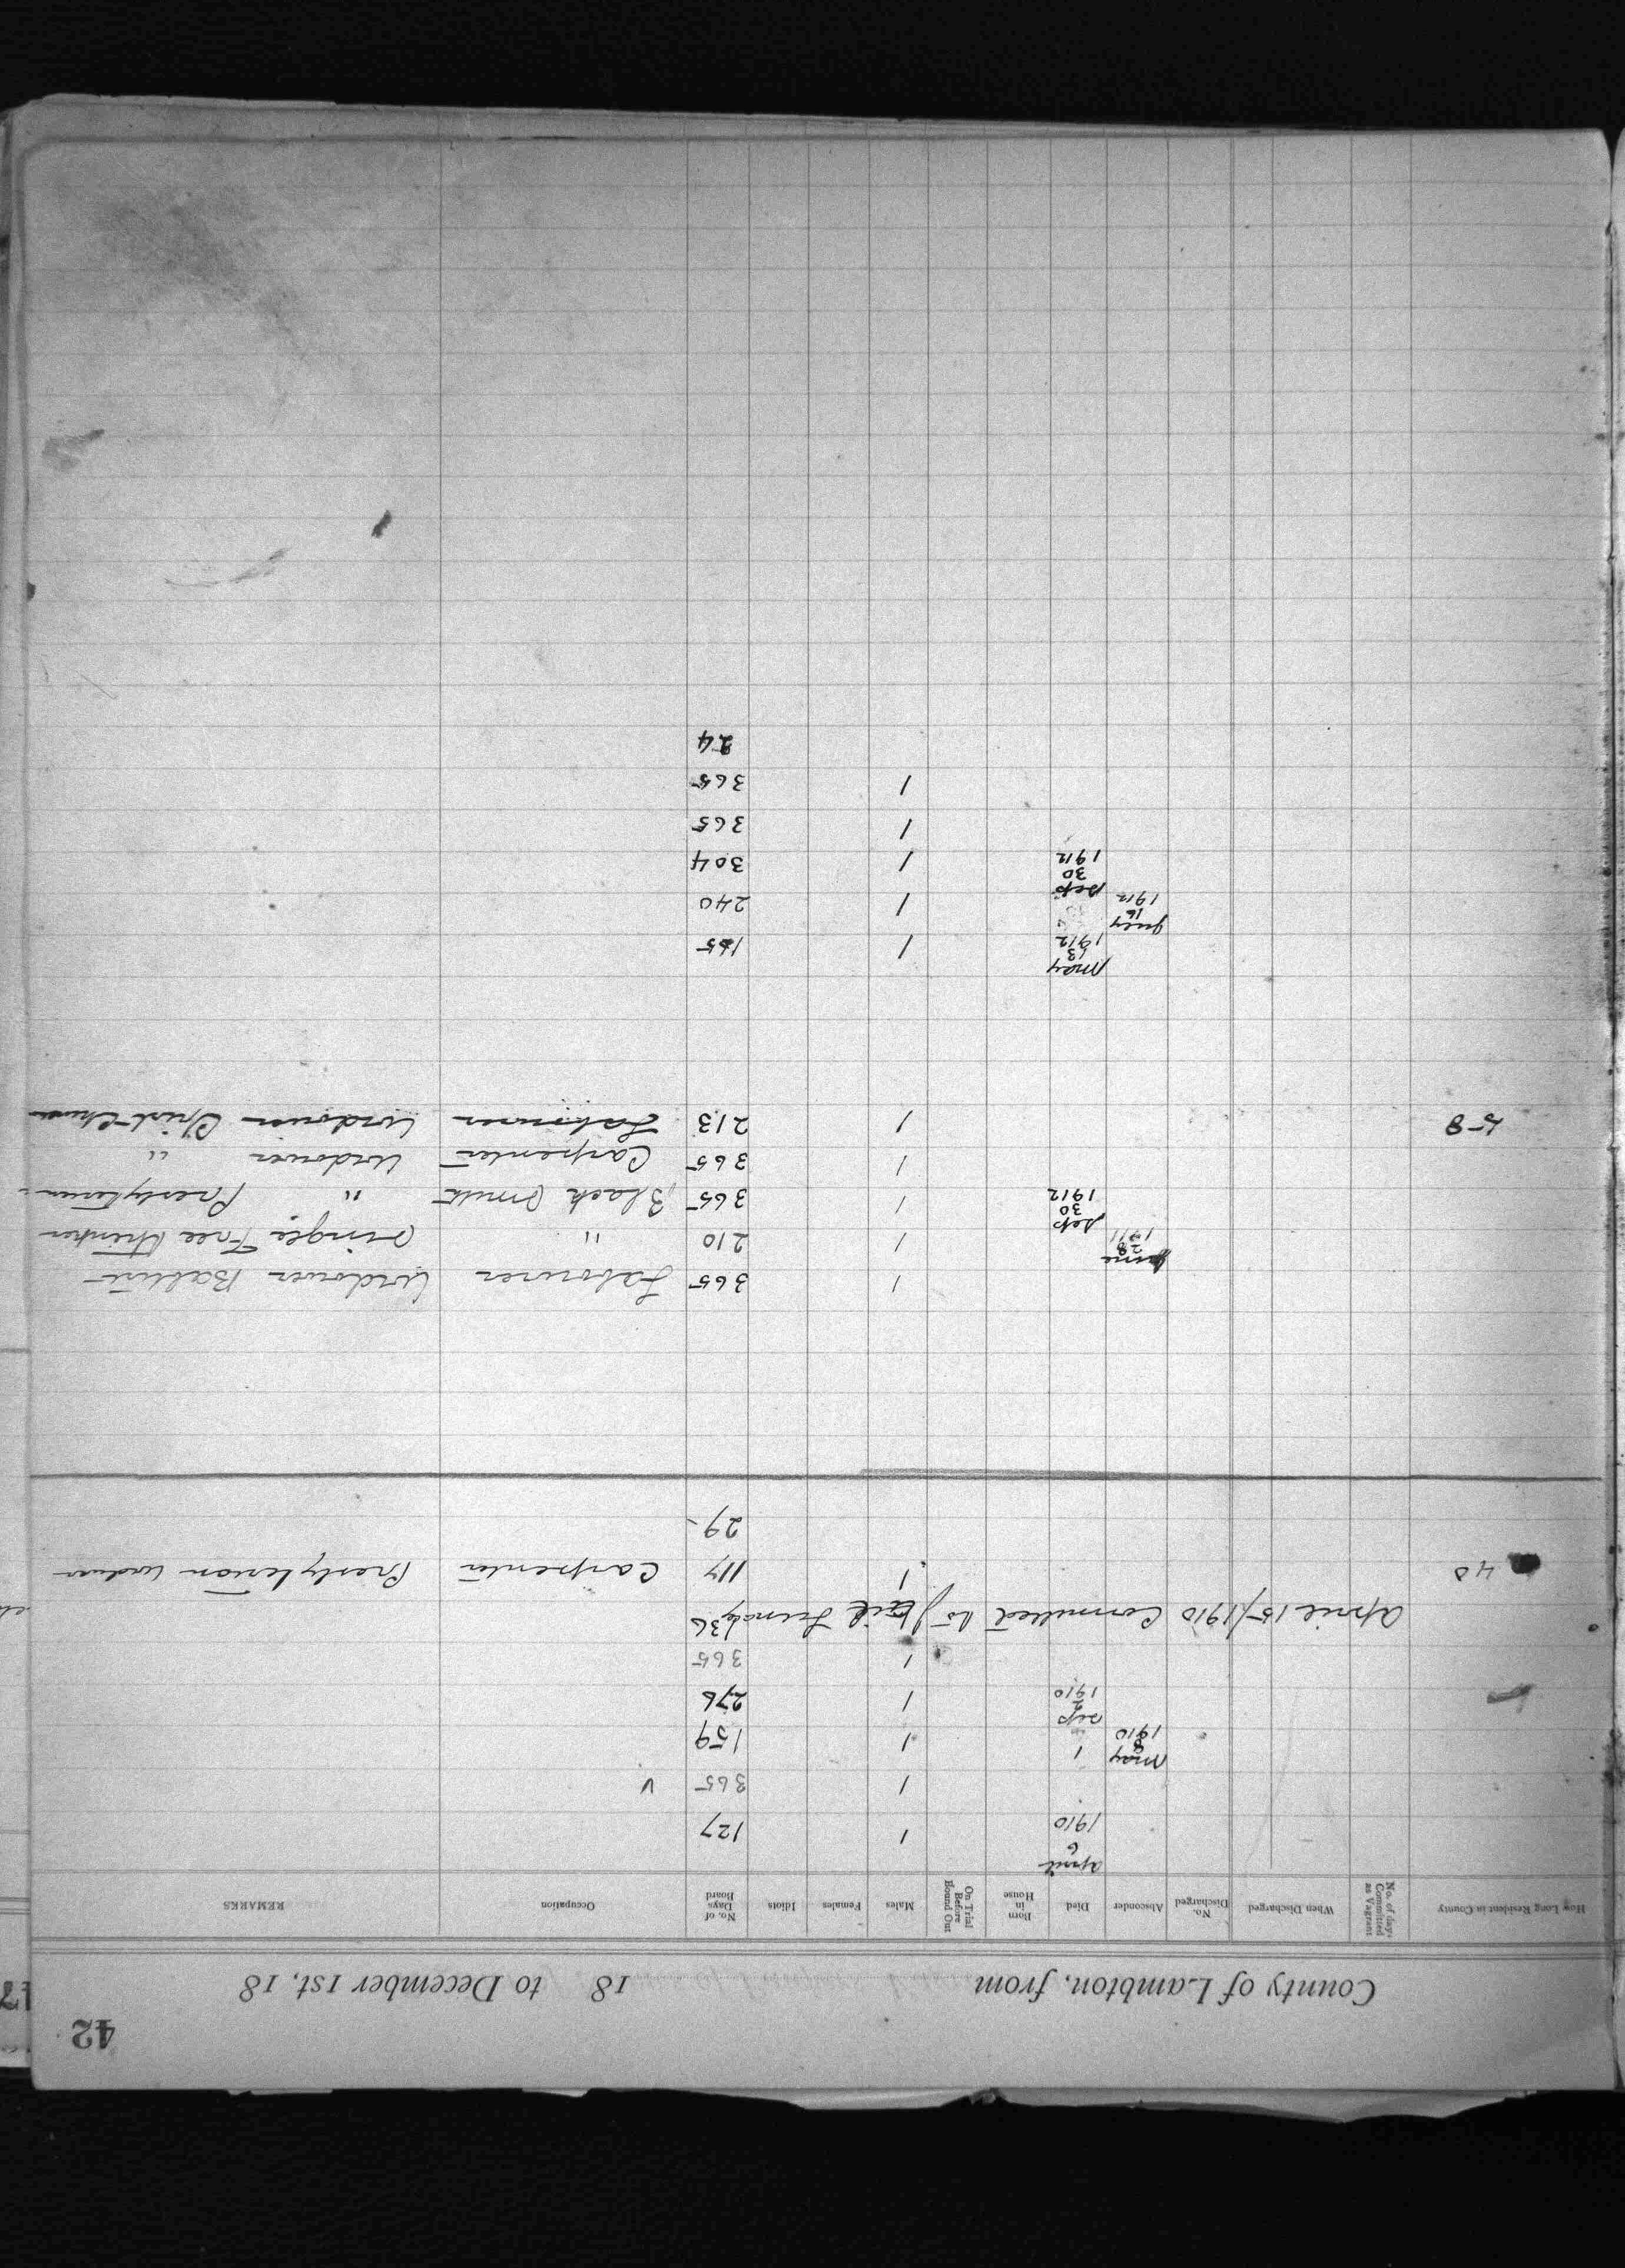 42
County of Lambton, from 18 to December 1st, 18
How Long Resident in County | No. of days Committed as Vagrant | When Discharged | No. Discharged | Absconder | Died | Born in House | On Trial Before Bound Out | Males | Females | Idiots | No. of Days Board | Occupation | REMARKS
April 6 1910 | 1 | 127
1 | 365 | v
May 8 1910 | 1 | 1 | 159
Sep 2 1910 | 1 | 276
1 | 365
April 15/1910 Committed to Jail 136
40 | 1 | 117 | Carpenter | Presbyterian
29
1 | 365 | Labourer | Widower Baptist
June 28 1911 | 1 | 210 | " | Single Free Thinker
Sep 30 1912 | 1 | 365 | Black Smith | " Presbyterian
1 | 365 | Carpenter | Widower "
58 | 1 | 213 | Labourer | Widower
May 13 1912 | 1 | 165
July 16 1912 | 1 | 240
Sep 30 1912 | 1 | 304
1 | 365
1 | 365
24